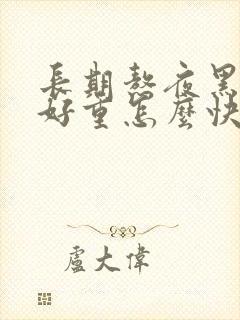 長期熬夜黑
好重怎麼快
盧大偉